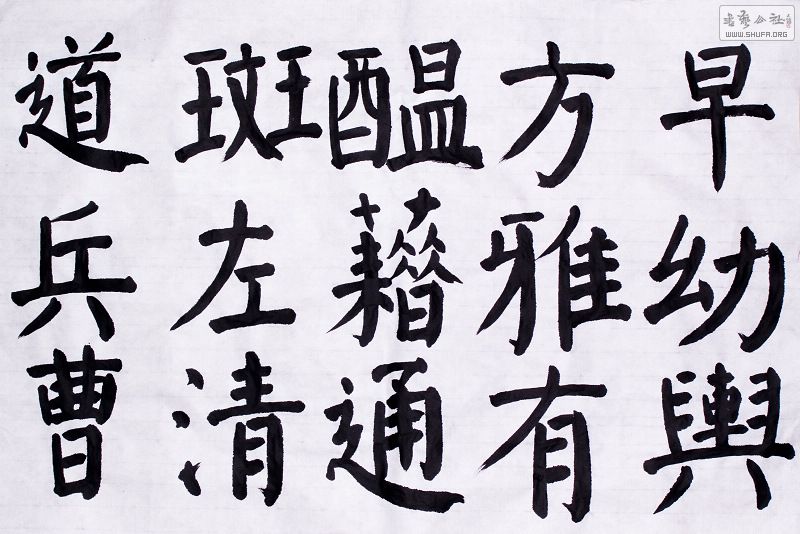 早幼輿
方雅有
醖藉通
斑左清
道兵曹
書藝公社
WWW.SHUFA.ORG